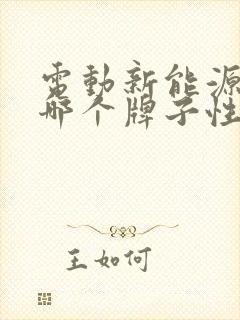 電動新能源
哪个牌子性
王如何